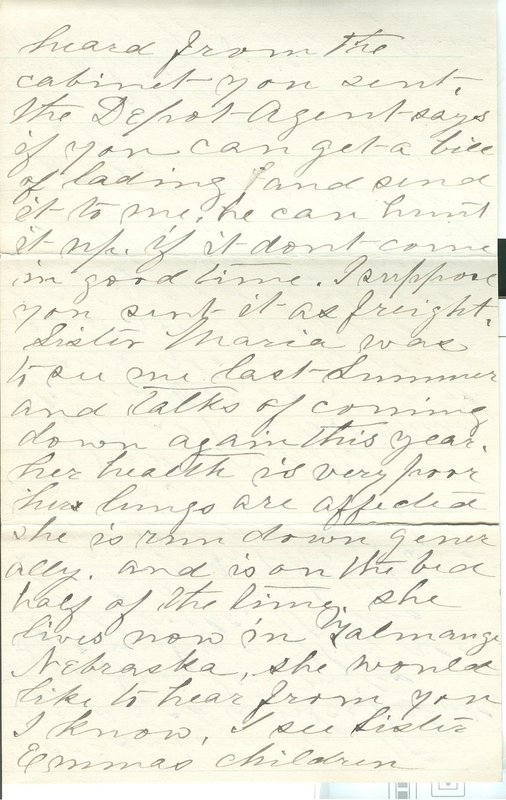 heard from the
cabinet you sent.
the Depot Agent says
if you can get a bill
of lading and send
it to me, he can hunt
it up. if it dont come
in good time. I suppose
you sent it as freight.
Sister Maria was
to see me last Summer
and talks of coming
down again this year.
her health is very poor
her lungs are affected
she is run down gener
ally. and is on the bed
half of the time. she
lives now in Talmange
Nebraska, she would
like to hear from you
I know, I see Sister
Emmas children